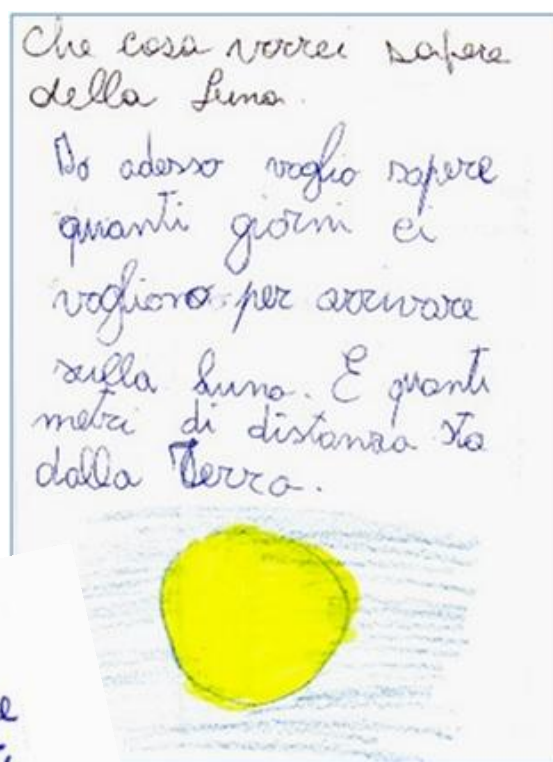 Che cosa vorrei sapere
della Luna.
Io adesso voglio sapere
quanti giorni ci
vogliono per arrivare
sulla Luna. E quanti
metri di distanza sta
dalla Terra.